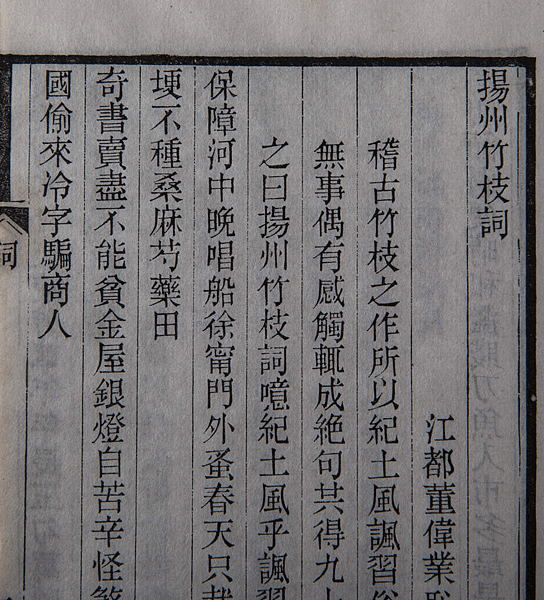 揚州竹枝詞
江都董偉業
稽古竹枝之作所以紀土風諷習
無事偶有感觸輒成絶句共得九
之曰揚州竹枝詞噫紀土風乎諷習
保障河中晚唱船徐甯門外蚤春天只
埂不種桑麻芍藥田
奇書賣盡不能貧金屋銀燈自苦辛怪
國偷來冷字騙商人
詞